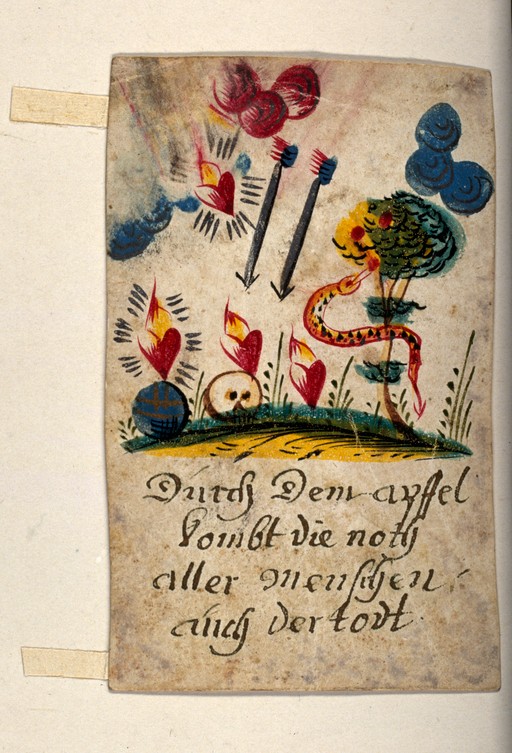 Durch Dem apffel
kombt die noth
aller Menschen,
auch der todt